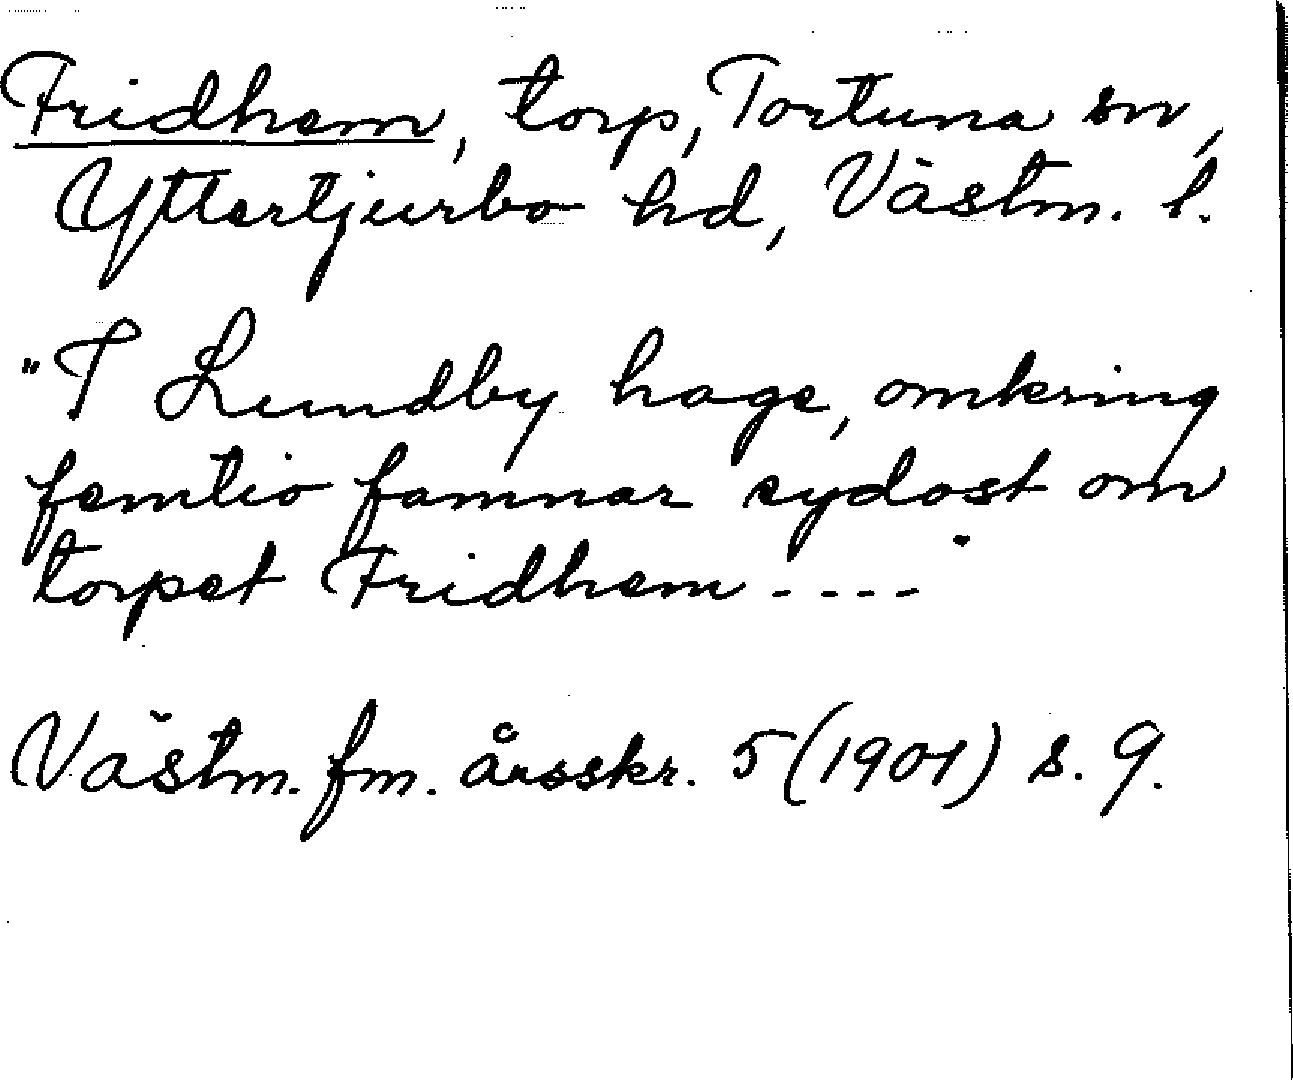 Fridhem, torp, Tortuna sn,
Yttertjurbo hd, Västm. l.
"I Lundby hage, omkring
femtio famnar sydost om
torpet Fridhem ----"
Västm. fm. årsskr. 5 (1901) s. 9.